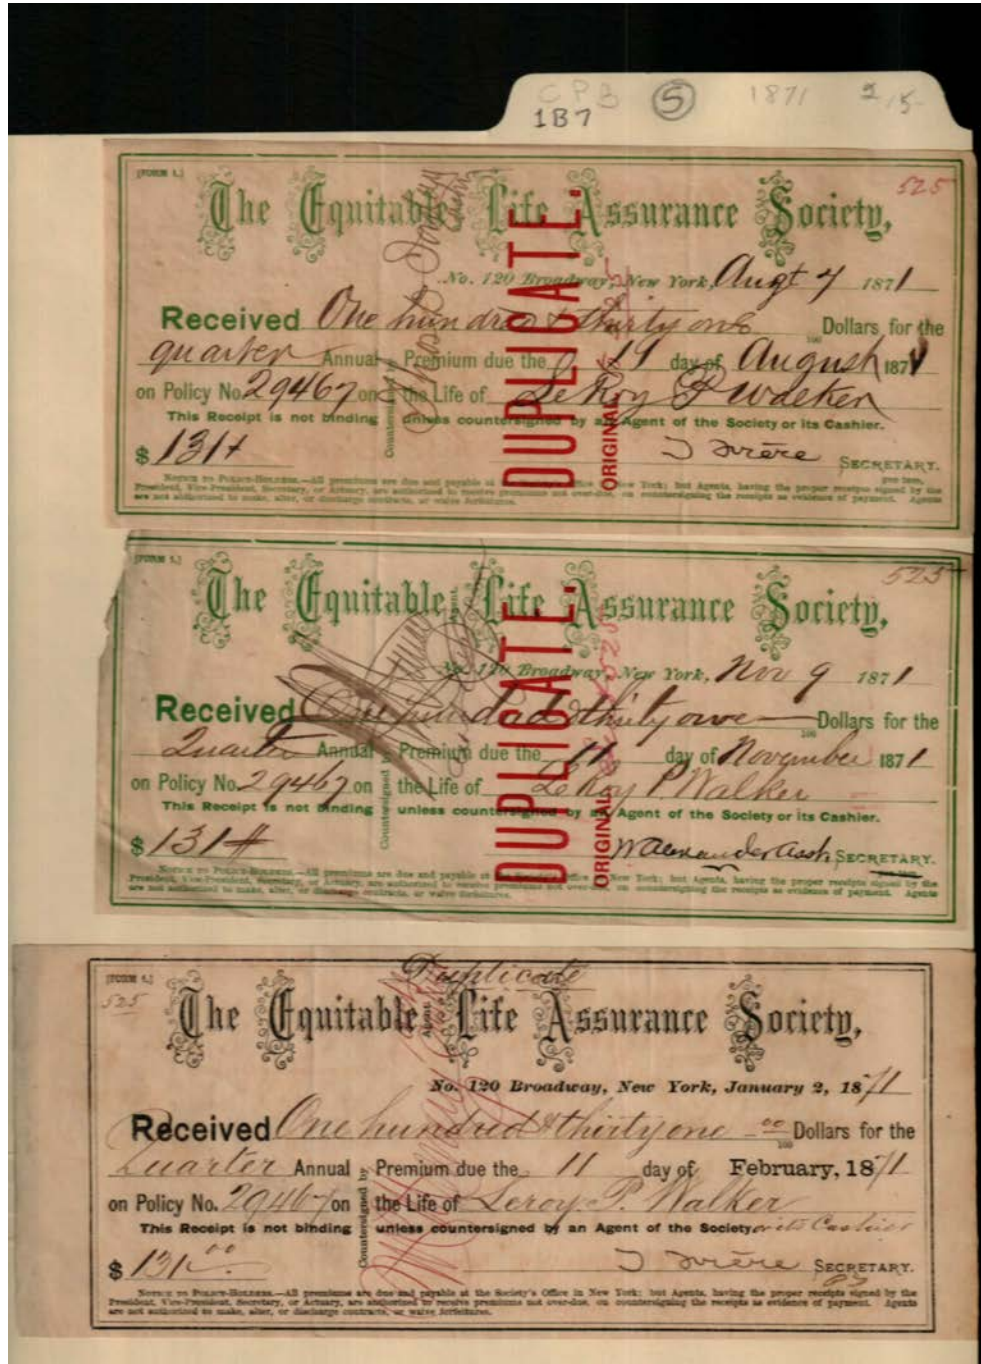 CPB ⑤ 1871
1B7
[FORM 1.] 525
The Equitable Life Assurance Society,
No. 120 Broadway, New York, Augt 4 1871
Received One hundred & thirty one Dollars for the
100
quarter Annual Premium due the day of August 1871
on Policy No. 29467 on the Life of LeRoy P Walker
This Receipt is not binding unless countersigned by an Agent of the Society or its Cashier.
$ 131 SECRETARY.
NOTICE TO POLICY-HOLDERS.—All premiums are due and payable at the Society's Office in New York; but Agents, having the proper receipts signed by the
President, Vice-President, Secretary, or Actuary, are authorized to receive premiums not over-due, on countersigning the receipts as evidence of payment. Agents
are not authorized to make, alter, or discharge contracts, or waive forfeitures.
Countersigned by
DUPLICATE.
ORIGINAL
[FORM 1.] 525
The Equitable Life Assurance Society,
No. 120 Broadway, New York, Nov 9 1871
Received One hundred & thirty one Dollars for the
100
Quarter Annual Premium due the 11 day of November 1871
on Policy No. 29467 on the Life of LeRoy P. Walker
This Receipt is not binding unless countersigned by an Agent of the Society or its Cashier.
$ 131 W Alexander Asst SECRETARY.
NOTICE TO POLICY-HOLDERS.—All premiums are due and payable at the Society's Office in New York; but Agents, having the proper receipts signed by the
President, Vice-President, Secretary, or Actuary, are authorized to receive premiums not over-due, on countersigning the receipts as evidence of payment. Agents
are not authorized to make, alter, or discharge contracts, or waive forfeitures.
Countersigned by
Agent.
DUPLICATE.
ORIGINAL
Duplicate
[FORM 1.]
525
The Equitable Life Assurance Society,
No. 120 Broadway, New York, January 2, 1871
Received One hundred & thirty one 00 Dollars for the
100
Quarter Annual Premium due the 11 day of February, 1871
on Policy No. 29467 on the Life of Leroy P. Walker
This Receipt is not binding unless countersigned by an Agent of the Society or its Cashier
$ 131 00 SECRETARY.
NOTICE TO POLICY-HOLDERS.—All premiums are due and payable at the Society's Office in New York; but Agents, having the proper receipts signed by the
President, Vice-President, Secretary, or Actuary, are authorized to receive premiums not over-due, on countersigning the receipts as evidence of payment. Agents
are not authorized to make, alter, or discharge contracts, or waive forfeitures.
Countersigned by
Agent.